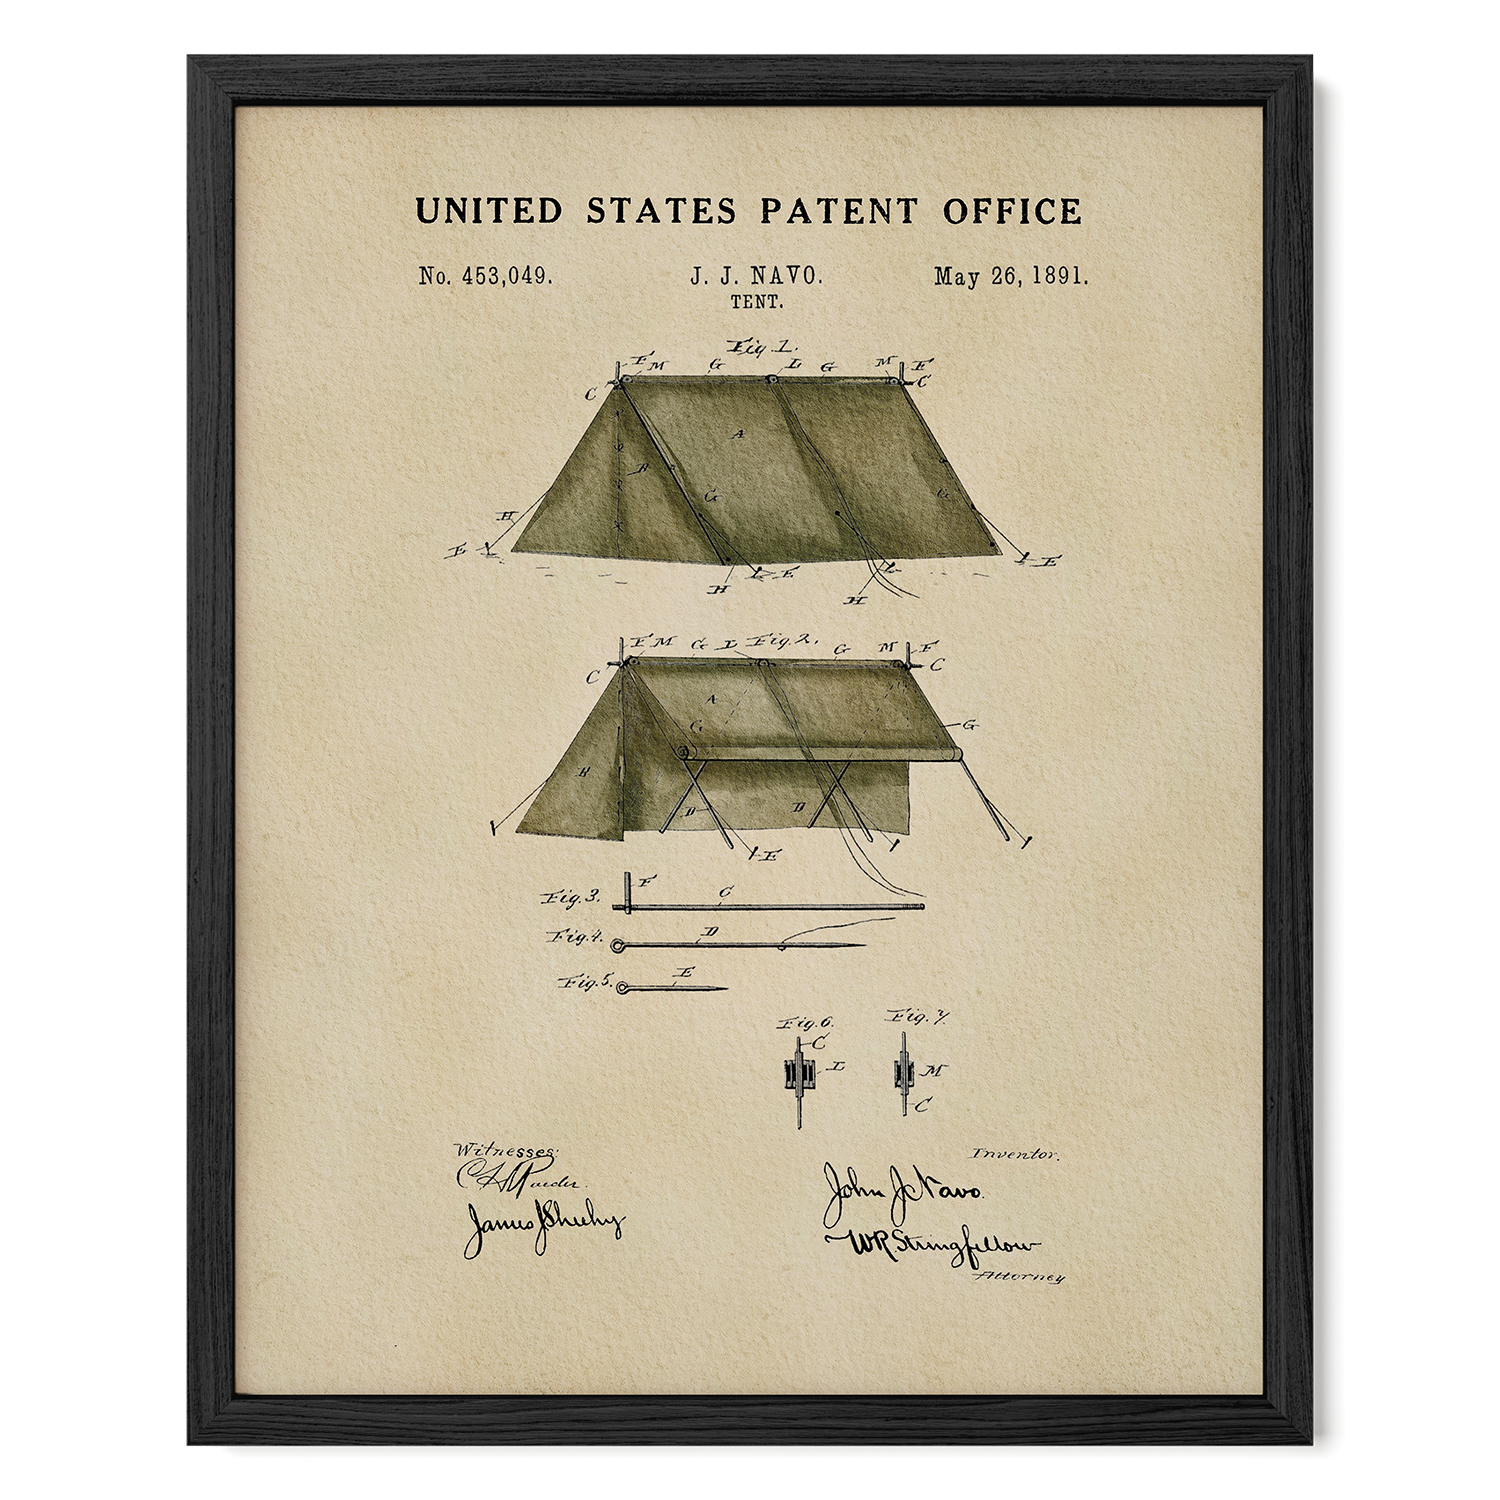 UNITED STATES PATENT OFFICE
No. 453,049. J. J. NAVO. May 26, 1891.
TENT.
Fig. 1.
F M G L G M F
C C
A
B
G G
H
E E
E
H H
F M G L Fig. 2. G M F
C C
A
G G
B
D D
E
Fig. 3. F C
Fig. 4. D
Fig. 5. E
Fig. 6. Fig. 7.
C
L M
C
Witnesses: Inventor.
John J. Navo.
James J Sheehy
W R. Stringfellow
Attorney